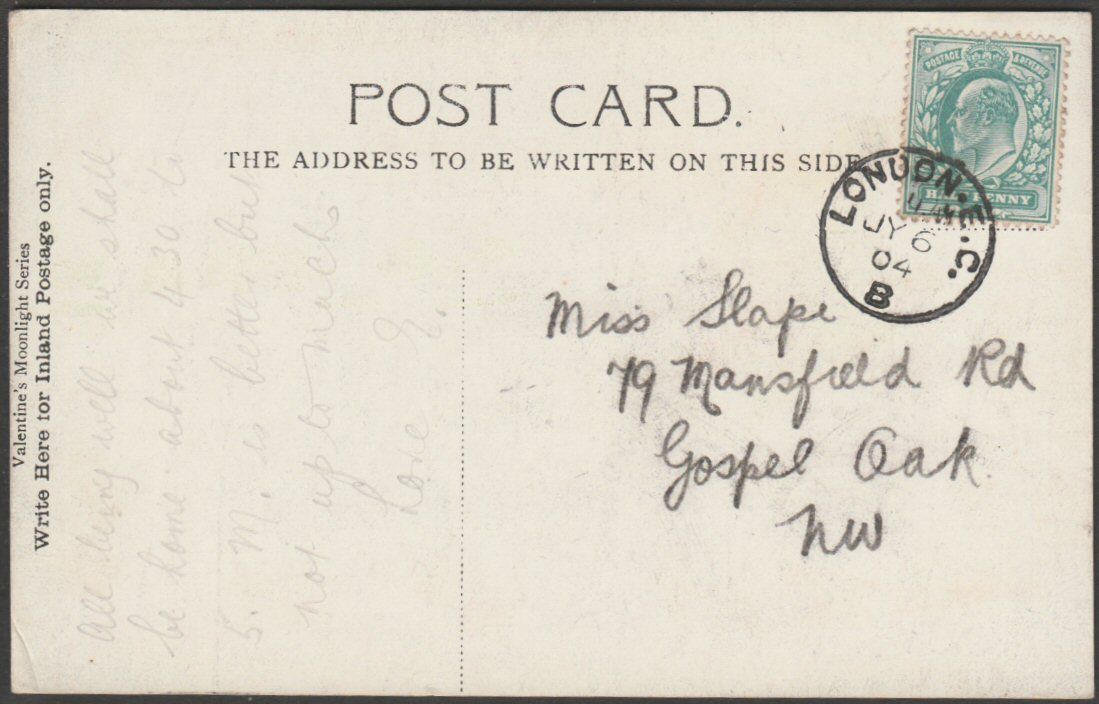 POST CARD.
THE ADDRESS TO BE WRITTEN ON THIS SIDE
Valentine's Moonlight Series
Write Here for Inland Postage only.
POSTAGE & REVENUE
HALF PENNY
LONDON.E.C.
JY 6
04
B
All being well we shall
be home about 4.30 to
5. M. is better but
not up to much
Love E.
Miss Slape
79 Mansfield Rd
Gospel Oak
NW